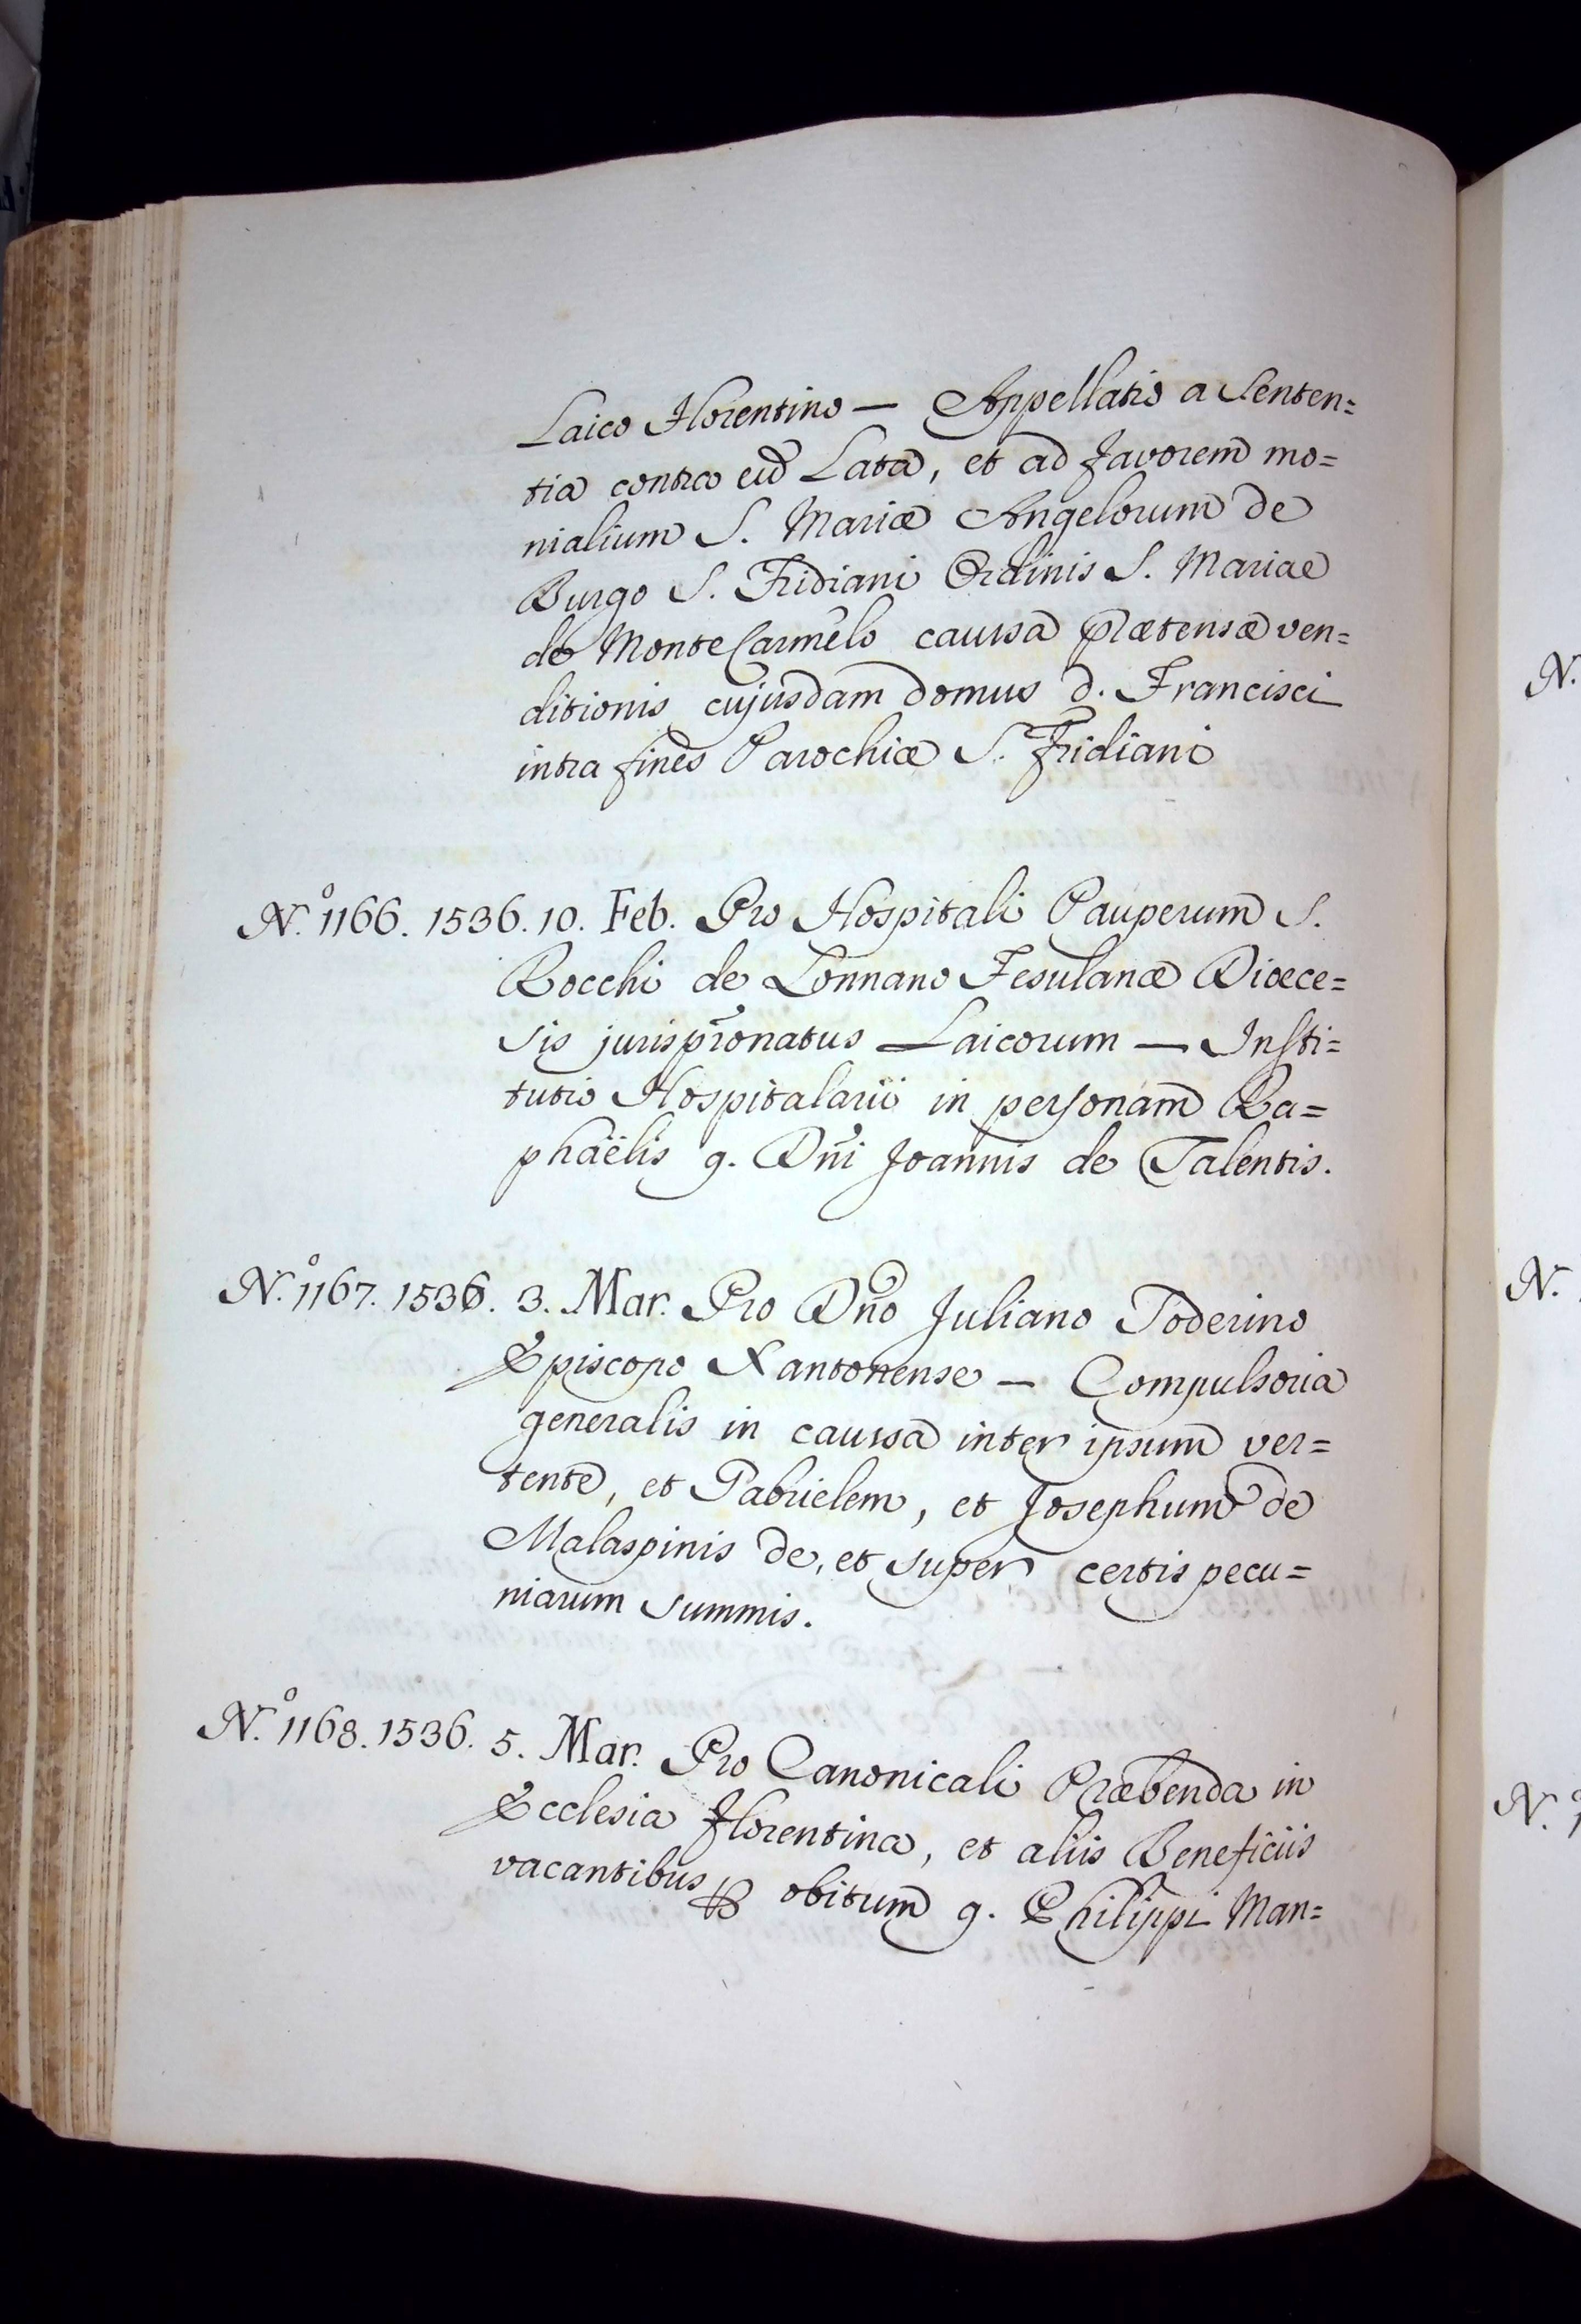 Laico Florentino — Appellatio a Senten=
tia contra eũ Lata, et ad favorem mo=
nialium S. Mariæ Angelorum de
Burgo S. Fridiani Ordinis S. Mariae
de Monte Carmelo caussa prætensæ ven=
ditionis cujusdam domus d. Francisci
intra fines Parochiæ S. Fridiani
N.º 1166. 1536. 10. Feb. Pro Hospitali Pauperum S.
Rocchi de Lonnano Fesulanæ Diœce=
sis jurisp̃ronatus Laicorum — Insti=
tutio Hospitalarii in personam Ra=
phäelis q. Dñi Joannis de Talentis.
N.º 1167. 1536. 3. Mar. Pro Dño Juliano Toderino
Episcopo Xantonense — Compulsoria
generalis in caussa inter ipsum ver=
tente, et Gabrielem, et Josephum de
Malaspinis de, et super certis pecu=
niarum summis.
N.º 1168. 1536. 5. Mar. Pro Canonicali Præbenda in
Ecclesia Florentina, et aliis Beneficiis
vacantibus ꝑ obitum q. Philippi Man=
N.
N.
N.º